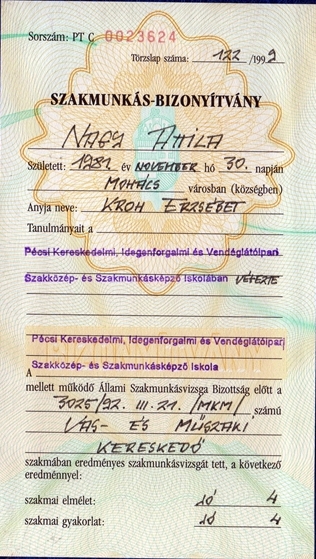 Sorszám: PT C 0023624
Törzslap száma: 122 /1999
SZAKMUNKÁS-BIZONYÍTVÁNY
NAGY ATTILA
Született: 1981 év NOVEMBER hó 30. napján
MOHÁCS városban (községben)
Anyja neve: KROH ERZSÉBET
Tanulmányait a
Pécsi Kereskedelmi, Idegenforgalmi és Vendéglátóipari
Szakközép- és Szakmunkásképző Iskolában VÉGEZTE
Pécsi Kereskedelmi, Idegenforgalmi és Vendéglátóipari
A Szakközép- és Szakmunkásképző Iskola
mellett működő Állami Szakmunkásvizsga Bizottság előtt a
3025/92. III. 21. /MKM/ számú
VAS- ÉS MŰSZAKI
KERESKEDŐ
szakmában eredményes szakmunkásvizsgát tett, a következő
eredménnyel:
szakmai elmélet: jó 4
szakmai gyakorlat: jó 4